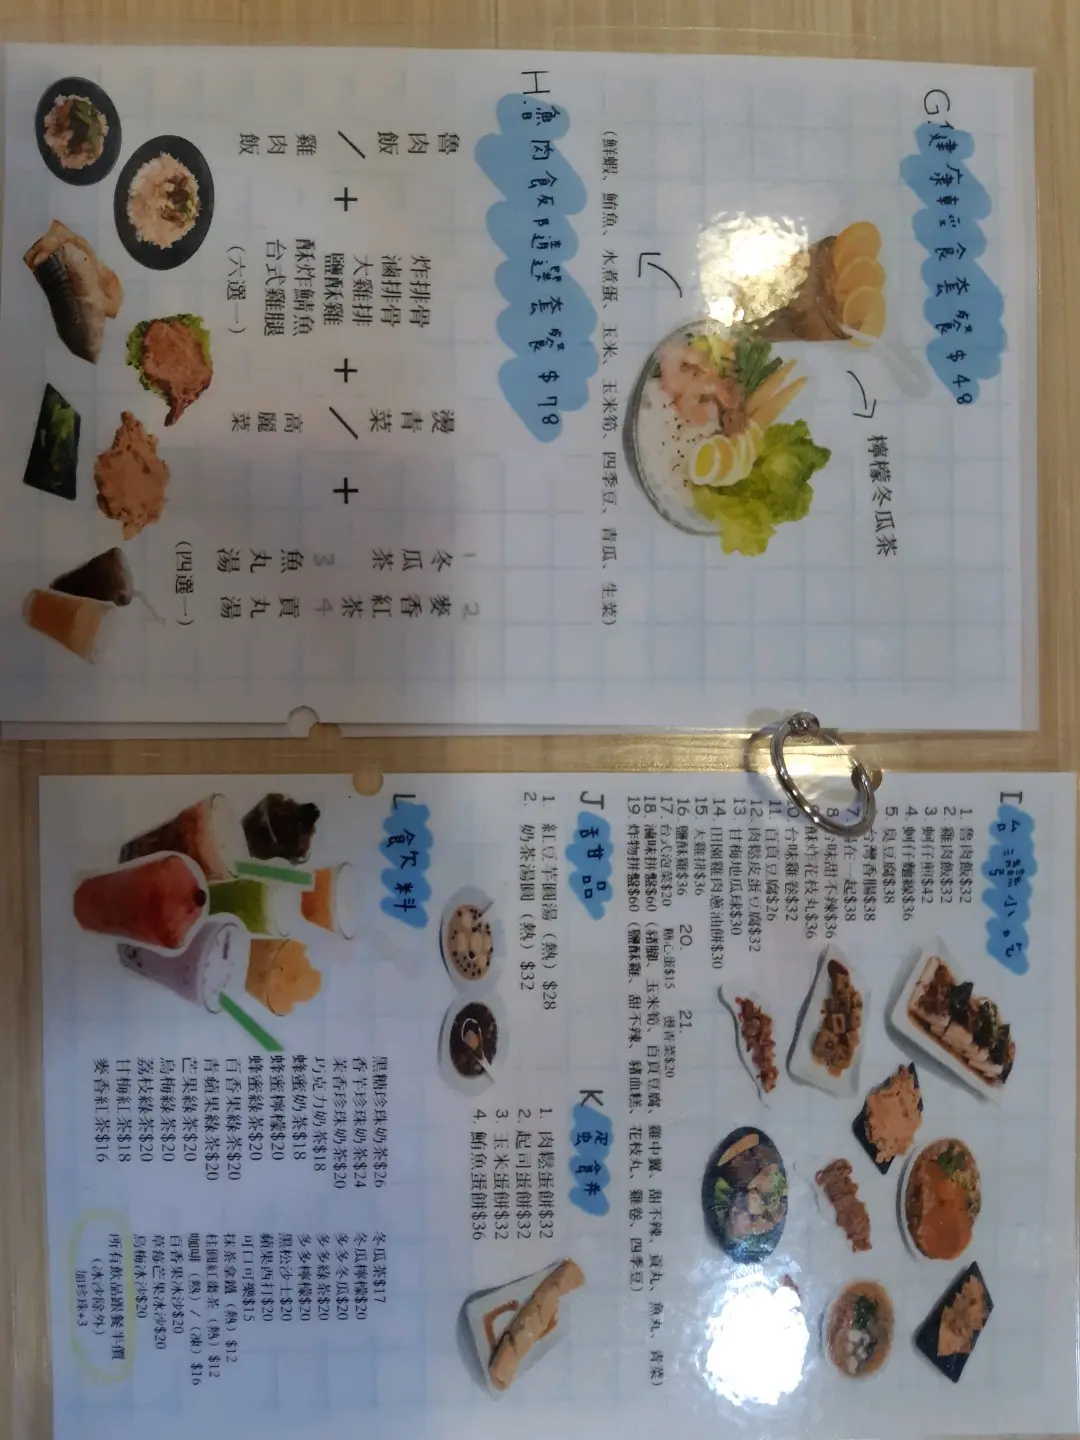 G.健康輕食套餐 $48
檸檬冬瓜茶
(鮮蝦、鮪魚、水煮蛋、玉米、玉米筍、四季豆、青瓜、生菜)
H.魯肉飯精選套餐 $78
魯肉飯 / 雞肉飯
+
炸排骨
滷排骨
大雞排
鹽酥雞
酥炸鯖魚
台式雞腿
(六選一)
+
燙青菜 / 高麗菜
+
1 冬瓜茶
2 麥香紅茶
3 魚丸湯
4 貢丸湯
(四選一)
I 台灣小吃
1. 魯肉飯$32
2. 雞肉飯$32
3. 蚵仔煎$42
4. 蚵仔麵線$36
5. 臭豆腐$38
台灣香腸$38
7.
在一起$38
8.
味甜不辣$36
酥炸花枝丸$36
10. 台味雞卷$32
11. 百頁豆腐$26
12. 肉鬆皮蛋豆腐$32
13. 甘梅地瓜球$30
14. 田園雞肉蔥油餅$30
15. 大雞排$36
16. 鹽酥雞$36
17. 台式泡菜$20
18. 滷味拼盤$60 (豬腳、玉米筍、百頁豆腐、雞中翼、甜不辣、貢丸、魚丸、青菜)
19. 炸物拼盤$60 (鹽酥雞、甜不辣、豬血糕、花枝丸、雞卷、四季豆)
20. 糖心蛋$15
21. 燙青菜$20
J 甜品
1. 紅豆芋圓湯(熱)$28
2. 奶茶湯圓(熱)$32
K 蛋餅
1. 肉鬆蛋餅$32
2. 起司蛋餅$32
3. 玉米蛋餅$32
4. 鮪魚蛋餅$36
L 飲料
黑糖珍珠奶茶$26
香芋珍珠奶茶$24
茉香珍珠奶茶$20
巧克力奶茶$18
蜂蜜奶茶$18
蜂蜜檸檬$20
蜂蜜綠茶$20
百香果綠茶$20
青蘋果綠茶$20
芒果綠茶$20
烏梅綠茶$20
荔枝綠茶$20
甘梅紅茶$18
麥香紅茶$16
冬瓜茶$17
冬瓜檸檬$20
多多冬瓜$20
多多綠茶$20
多多檸檬$20
黑松沙士$20
蘋果西打$20
可口可樂$15
抹茶拿鐵(熱)$12
桂圓紅棗茶(熱)$12
咖啡(熱)/(凍)$16
百香果冰沙$20
草莓芒果冰沙$20
烏梅冰沙$20
所有飲品跟餐半價
(冰沙除外)
加珍珠+3